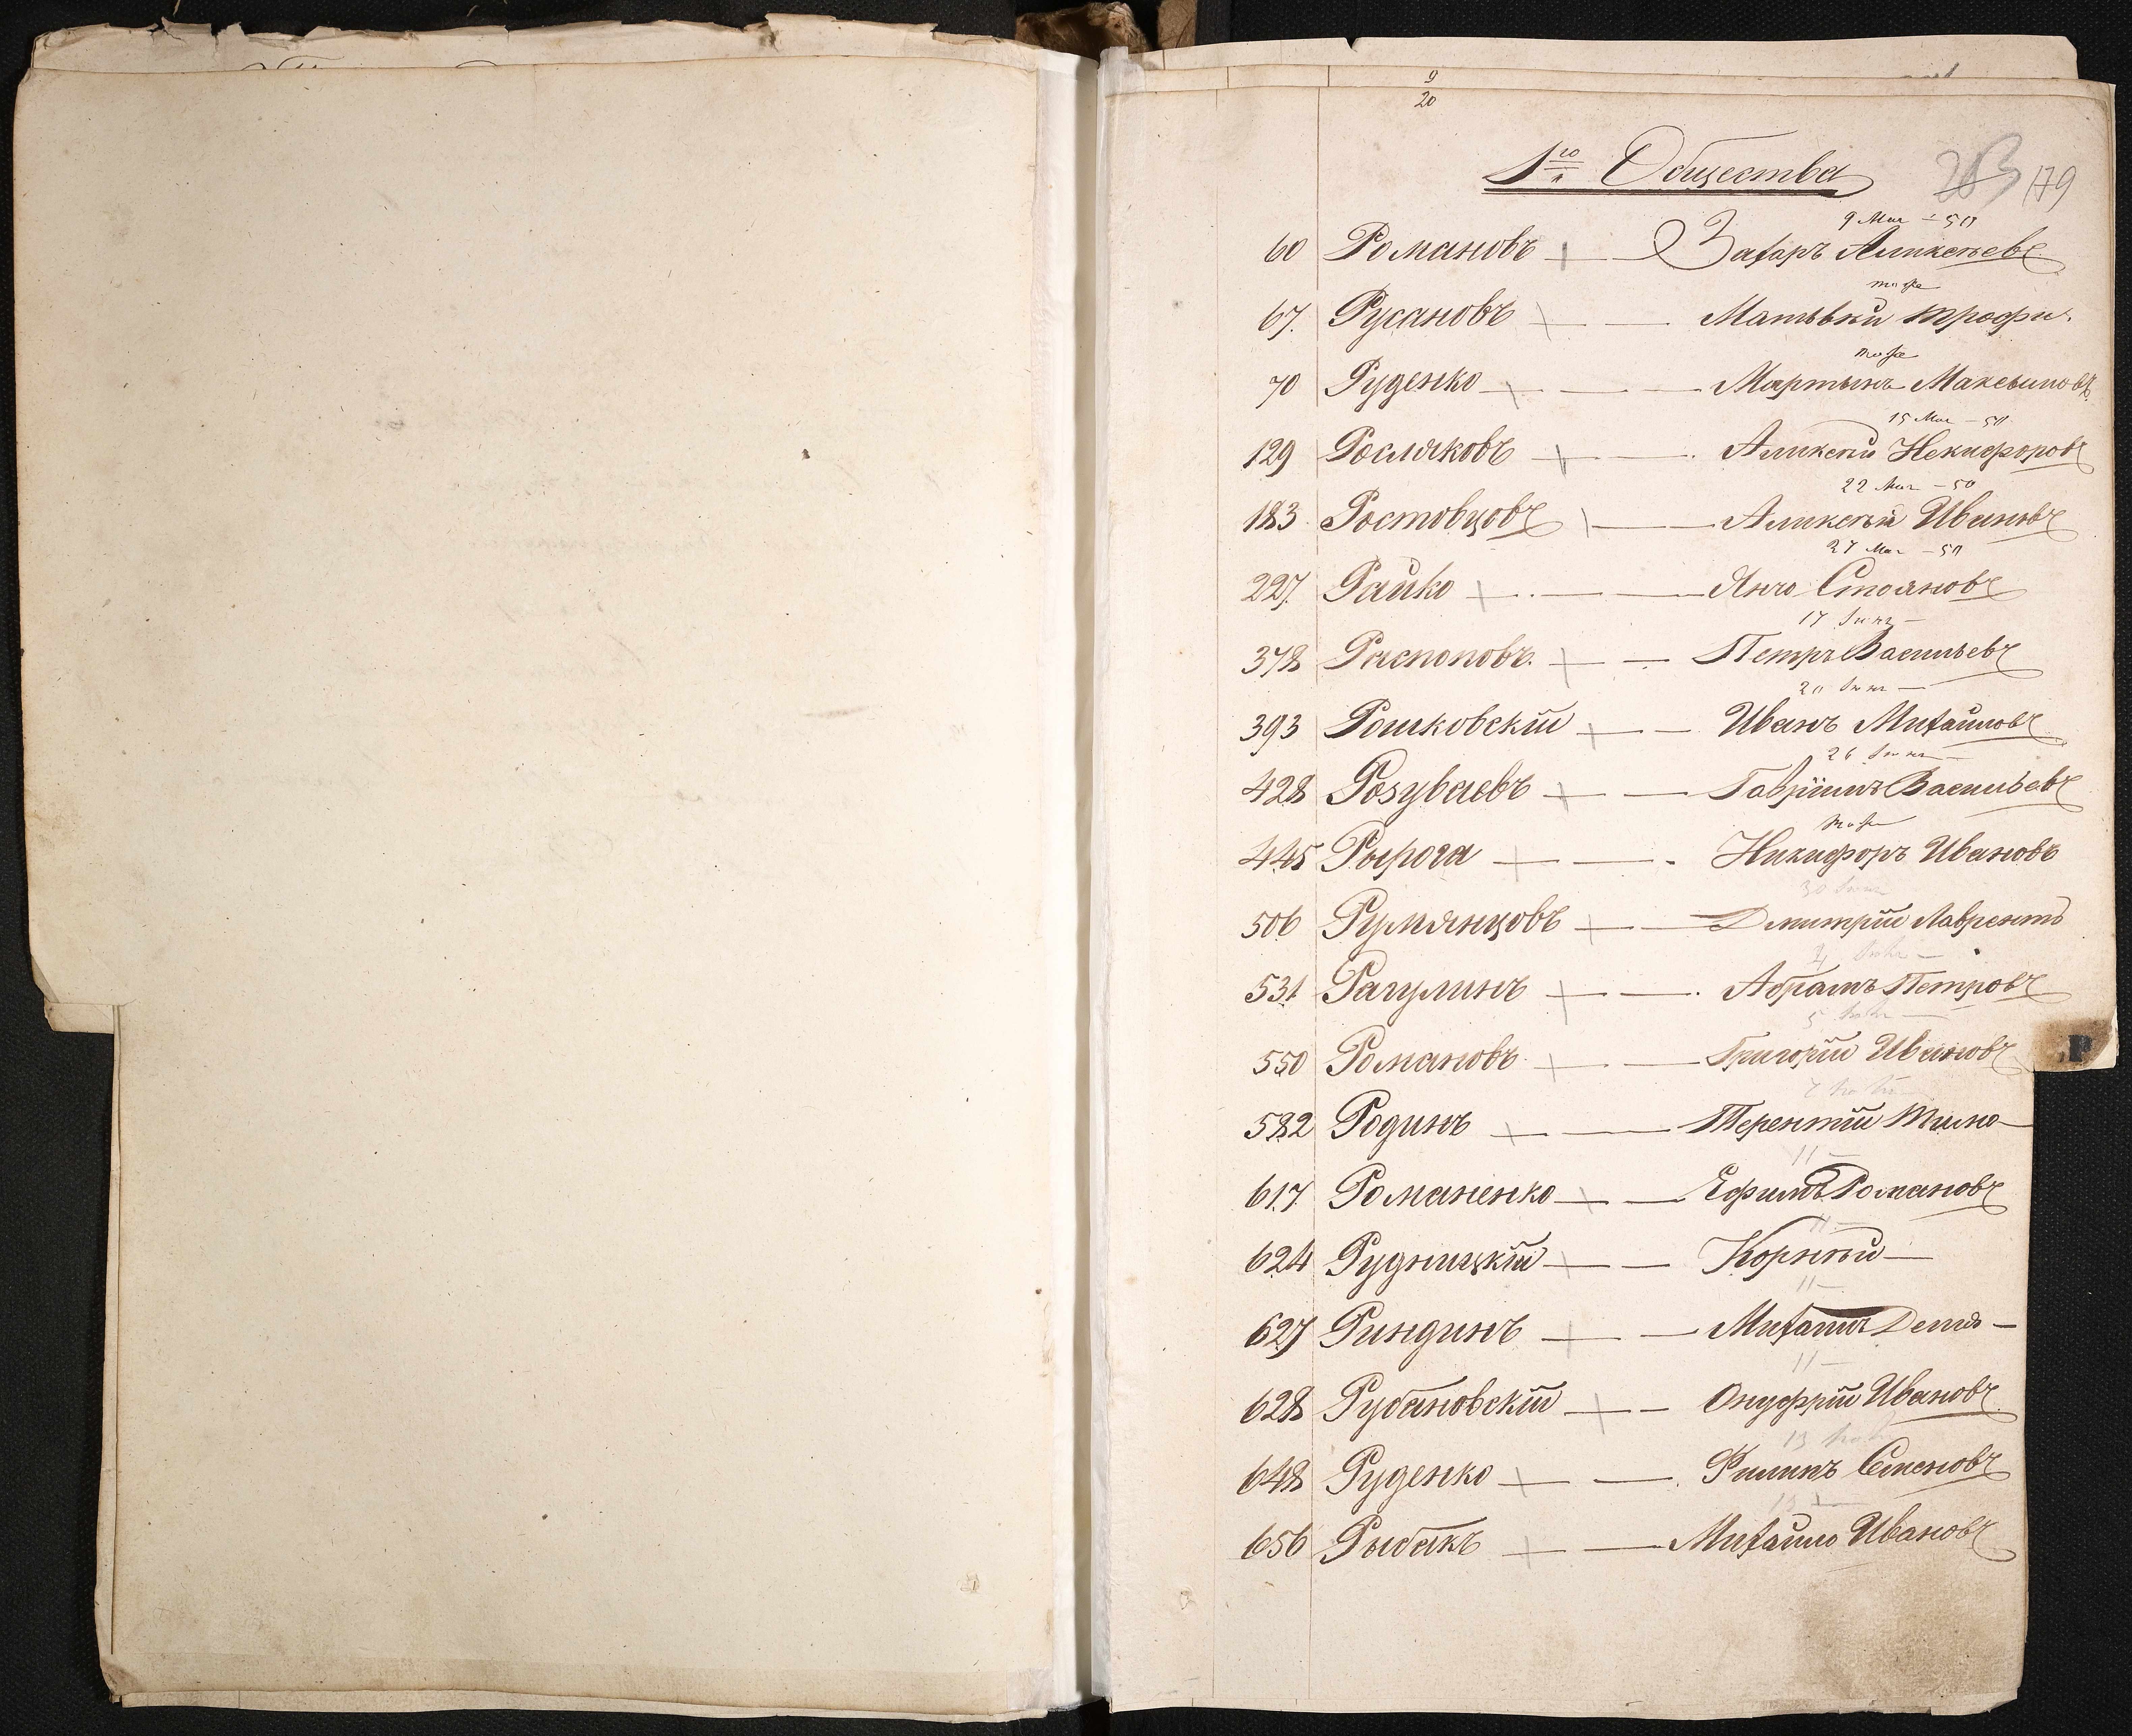 9
20
1го Общества 203 179
9 Мая - 50
60 Романовъ Захаръ Аликсѣевъ
тоже
67. Русановъ Матвѣй Трофи.
тоже
70 Руденко Мартынъ Максимовъ
15 Мая - 50
129 Росляковъ Аликсѣй Некифоровъ
22 Мая - 50
183 Ростовцовъ Аликсѣй Ивановъ
27 Мая - 50
227. Райко Янчо Стояновъ
17 Іюня -
378 Распоповъ. Петръ Васильевъ
20 Іюня -
393 Рошковскій Иванъ Михайловъ
26 Іюня -
428 Розуваевъ Гавріилъ Васильевъ
тоже
445 Рырога Никифоръ Ивановъ
30 Іюня
506 Румянцовъ Дмитрій Лаврентъ
4
531 Рагулинъ Абрамъ Петровъ
5
550 Романовъ Григорій Ивановъ
7
582 Родинъ Терентій Тимо-
11 -
617. Романенко Ефимъ Романовъ
11 -
624 Рудницкій Корнѣй -
11 -
627 Риндинъ Михаилъ -
11 -
628 Рубановскій Онуфрій Ивановъ
13
648 Руденко Филипъ Семеновъ
13 -
656 Рыбакъ Михайло Ивановъ
Р